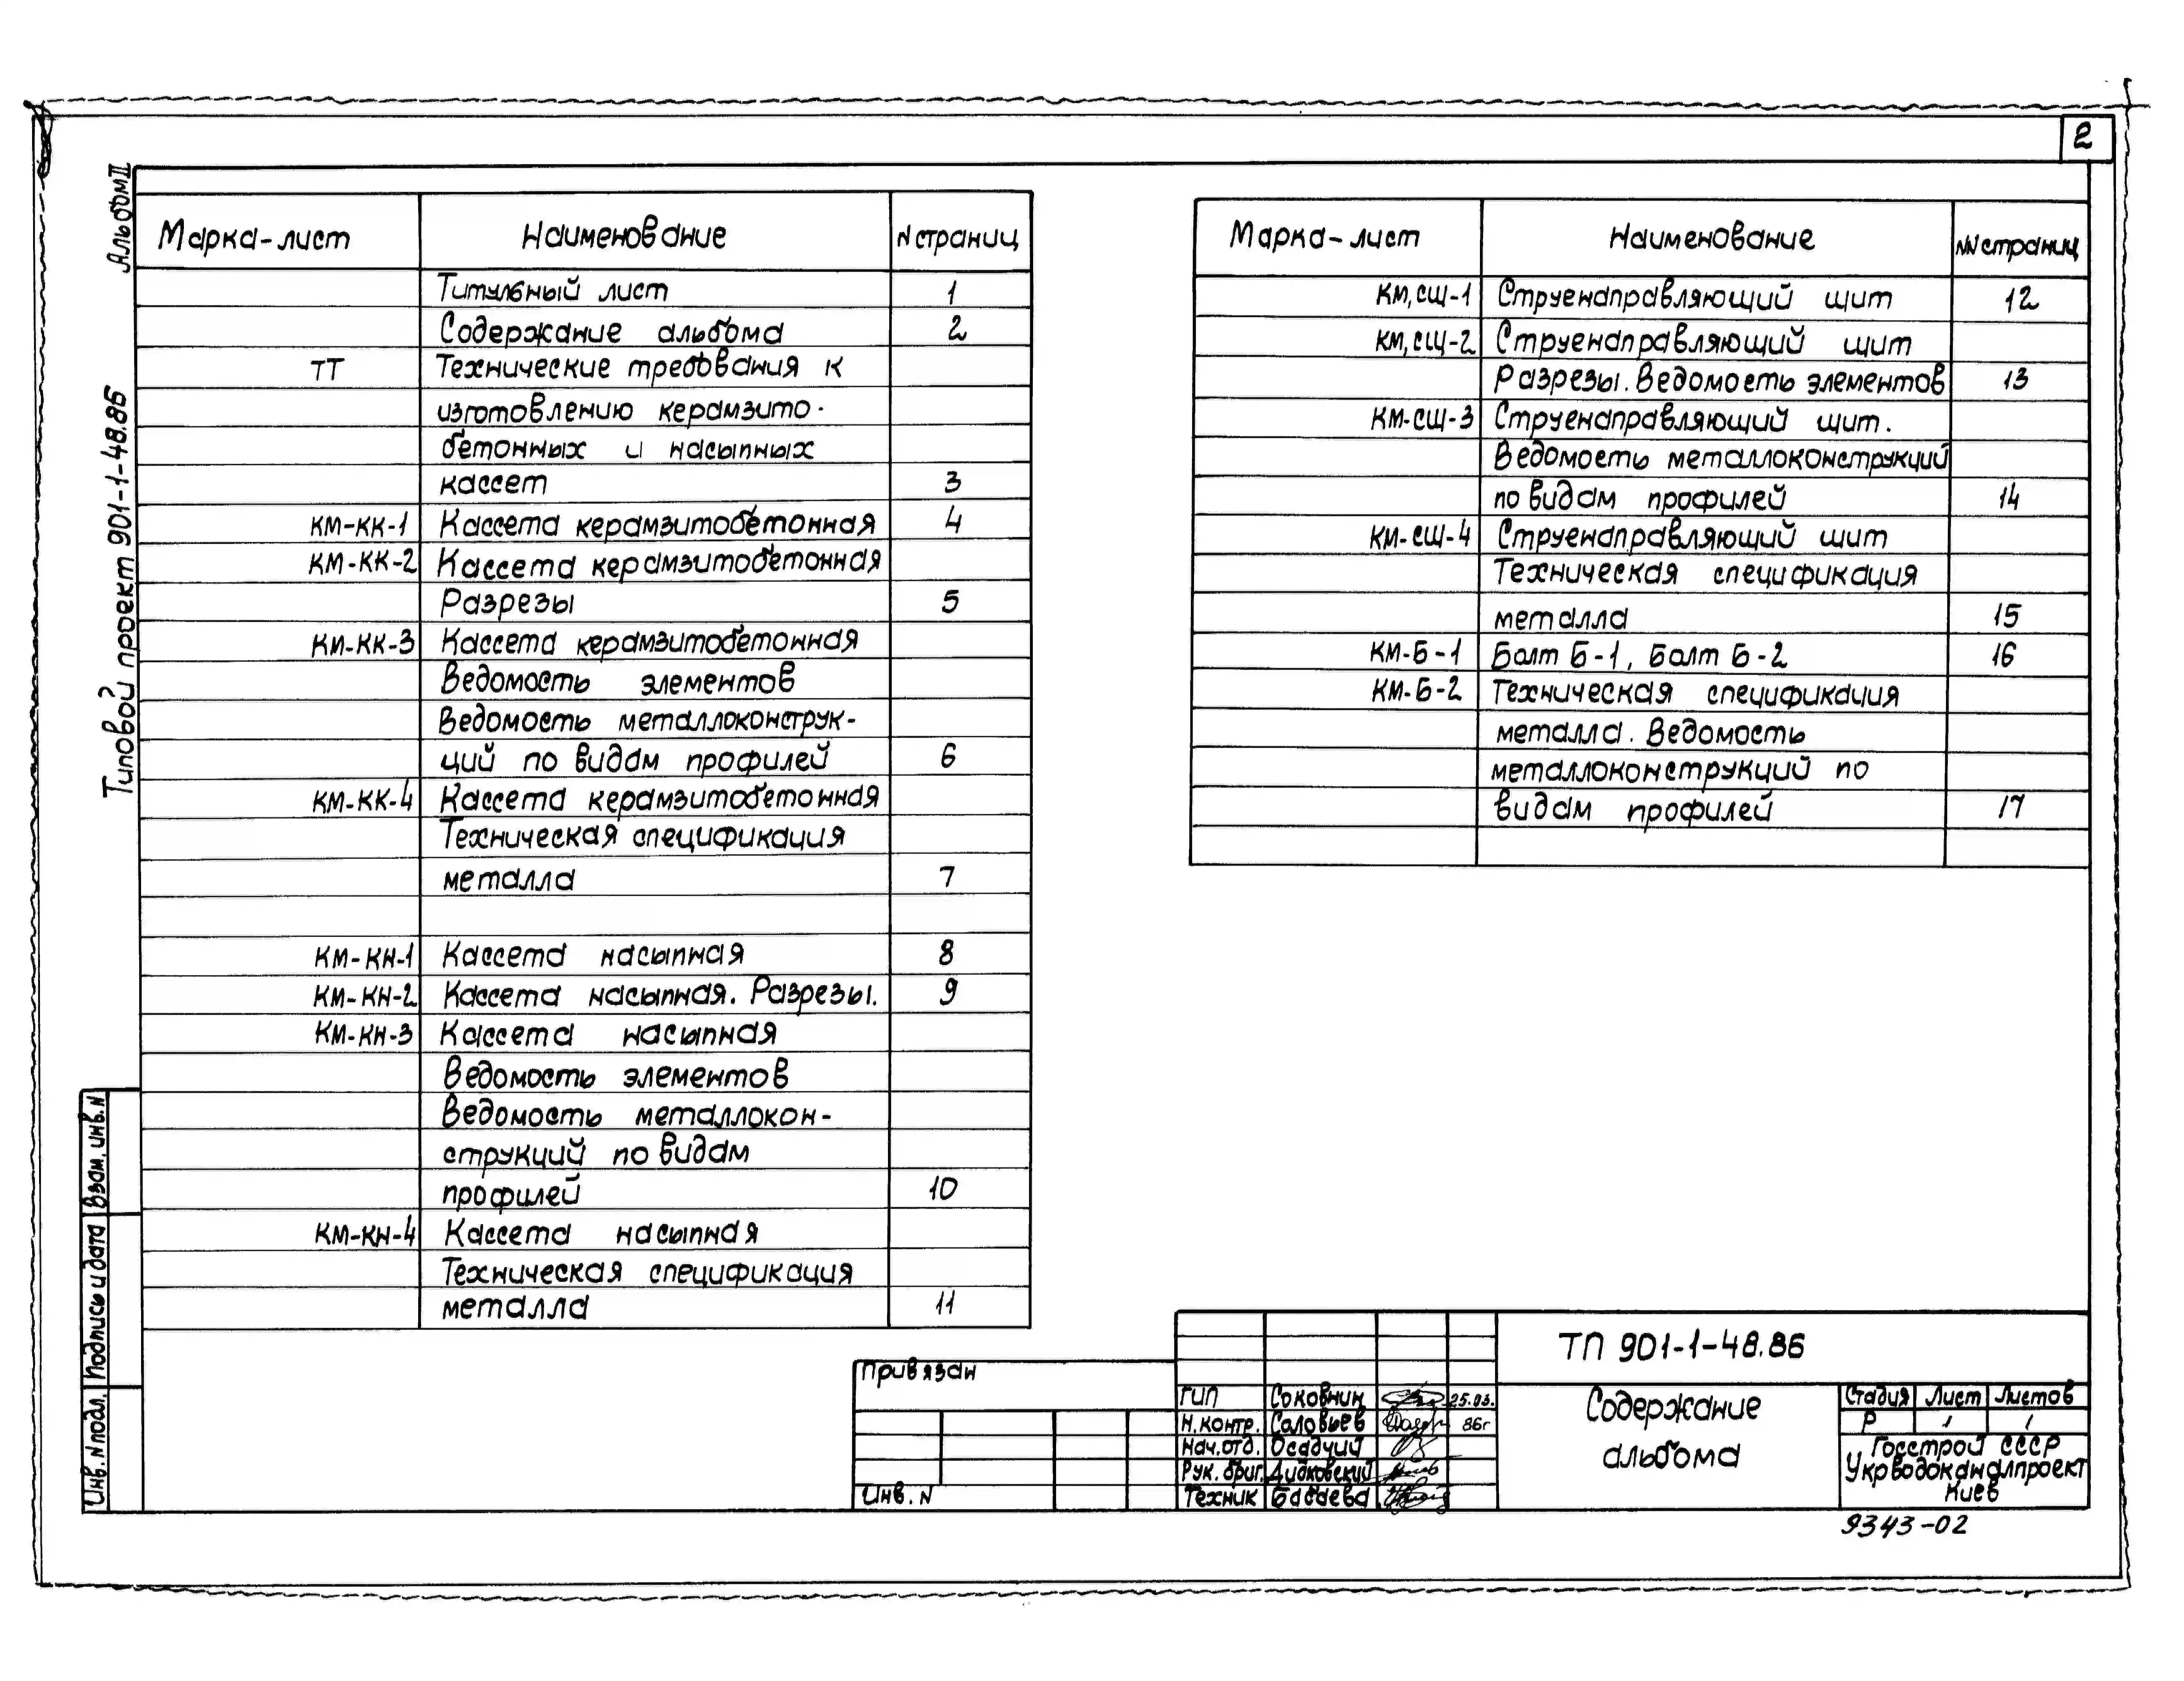 2
Альбом II
Типовой проект 901-1-48.86
Марка-лист Наименование N страниц
Титульный лист 1
Содержание альбома 2
ТТ Технические требования к
изготовлению керамзито-
бетонных и насыпных
кассет 3
КМ-КК-1 Кассета керамзитобетонная 4
КМ-КК-2 Кассета керамзитобетонная
Разрезы 5
КМ-КК-3 Кассета керамзитобетонная
Ведомость элементов
Ведомость металлоконструк-
ций по видам профилей 6
КМ-КК-4 Кассета керамзитобетонная
Техническая спецификация
металла 7
КМ-КН-1 Кассета насыпная 8
КМ-КН-2 Кассета насыпная. Разрезы. 9
КМ-КН-3 Кассета насыпная
Ведомость элементов
Ведомость металлокон-
струкций по видам
профилей 10
КМ-КН-4 Кассета насыпная
Техническая спецификация
металла 11
Марка-лист Наименование NN страниц
КМ,СЩ-1 Струенаправляющий щит 12
КМ,СЩ-2 Струенаправляющий щит
Разрезы. Ведомость элементов 13
КМ-СЩ-3 Струенаправляющий щит.
Ведомость металлоконструкций
по видам профилей 14
КМ-СЩ-4 Струенаправляющий щит
Техническая спецификация
металла 15
КМ-Б-1 Болт Б-1, Болт Б-2 16
КМ-Б-2 Техническая спецификация
металла. Ведомость
металлоконструкций по
видам профилей 17
Взам. инв. N
Подпись и дата
Инв. N подл.
Привязан
Инв. N
ГИП Соковнин 25.03.
Н. контр. Соловьев 86г
Нач. отд. Осадчий
Рук. бриг. Дидковский
Техник Бабаева
ТП 901-1-48.86
Содержание
альбома
Стадия Лист Листов
Р 1 1
Госстрой СССР
Укрводоканалпроект
Киев
9343-02